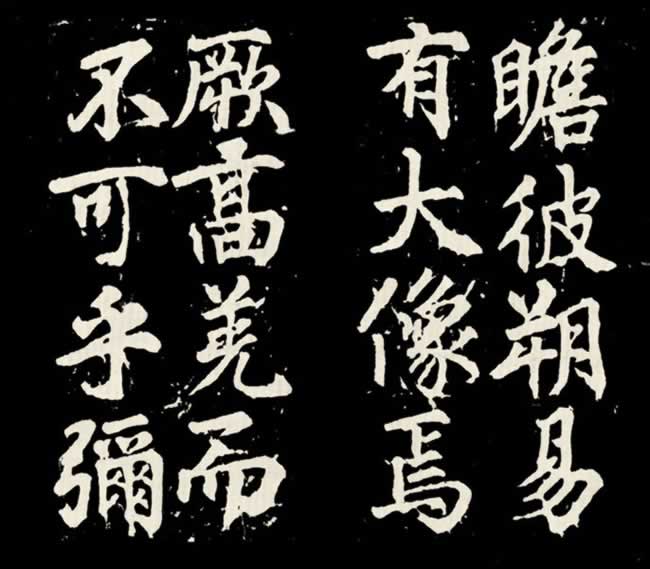 瞻彼朔易
有大像焉
厥髙羌而
不可乎彌